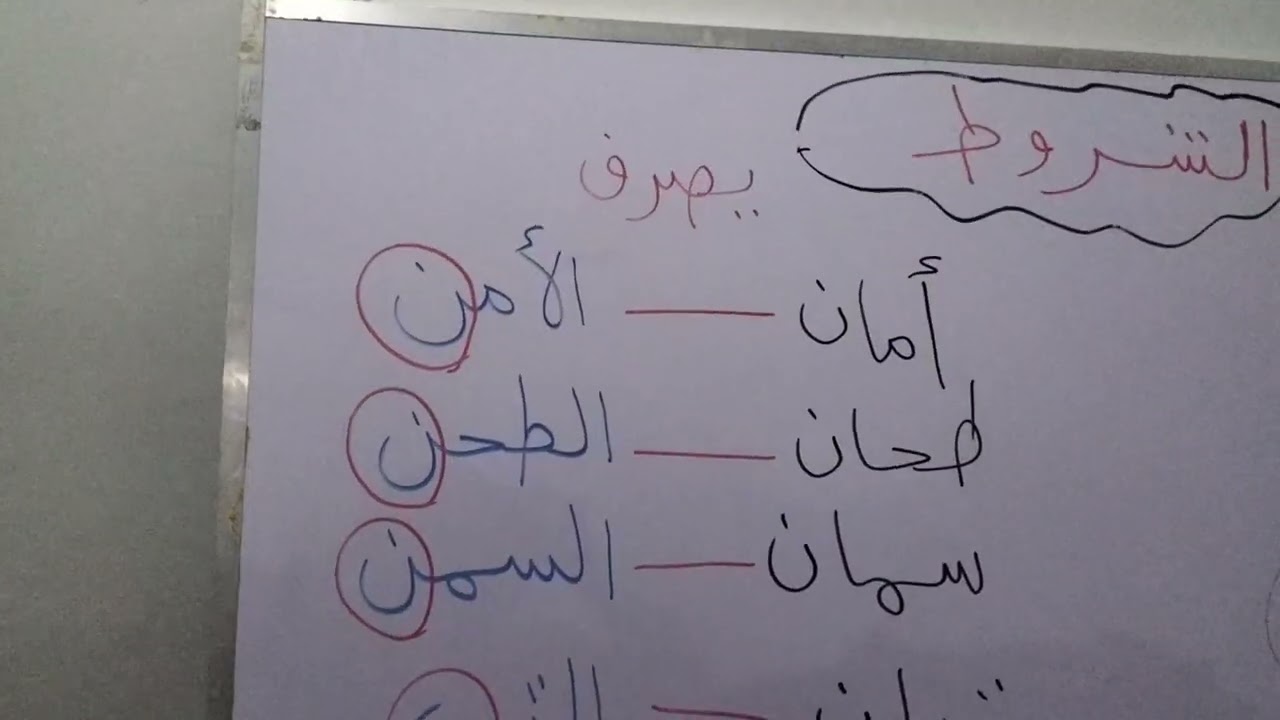 الشروط
يصرف
أمان — الأمن
طحان — الطحن
سمان — السمن